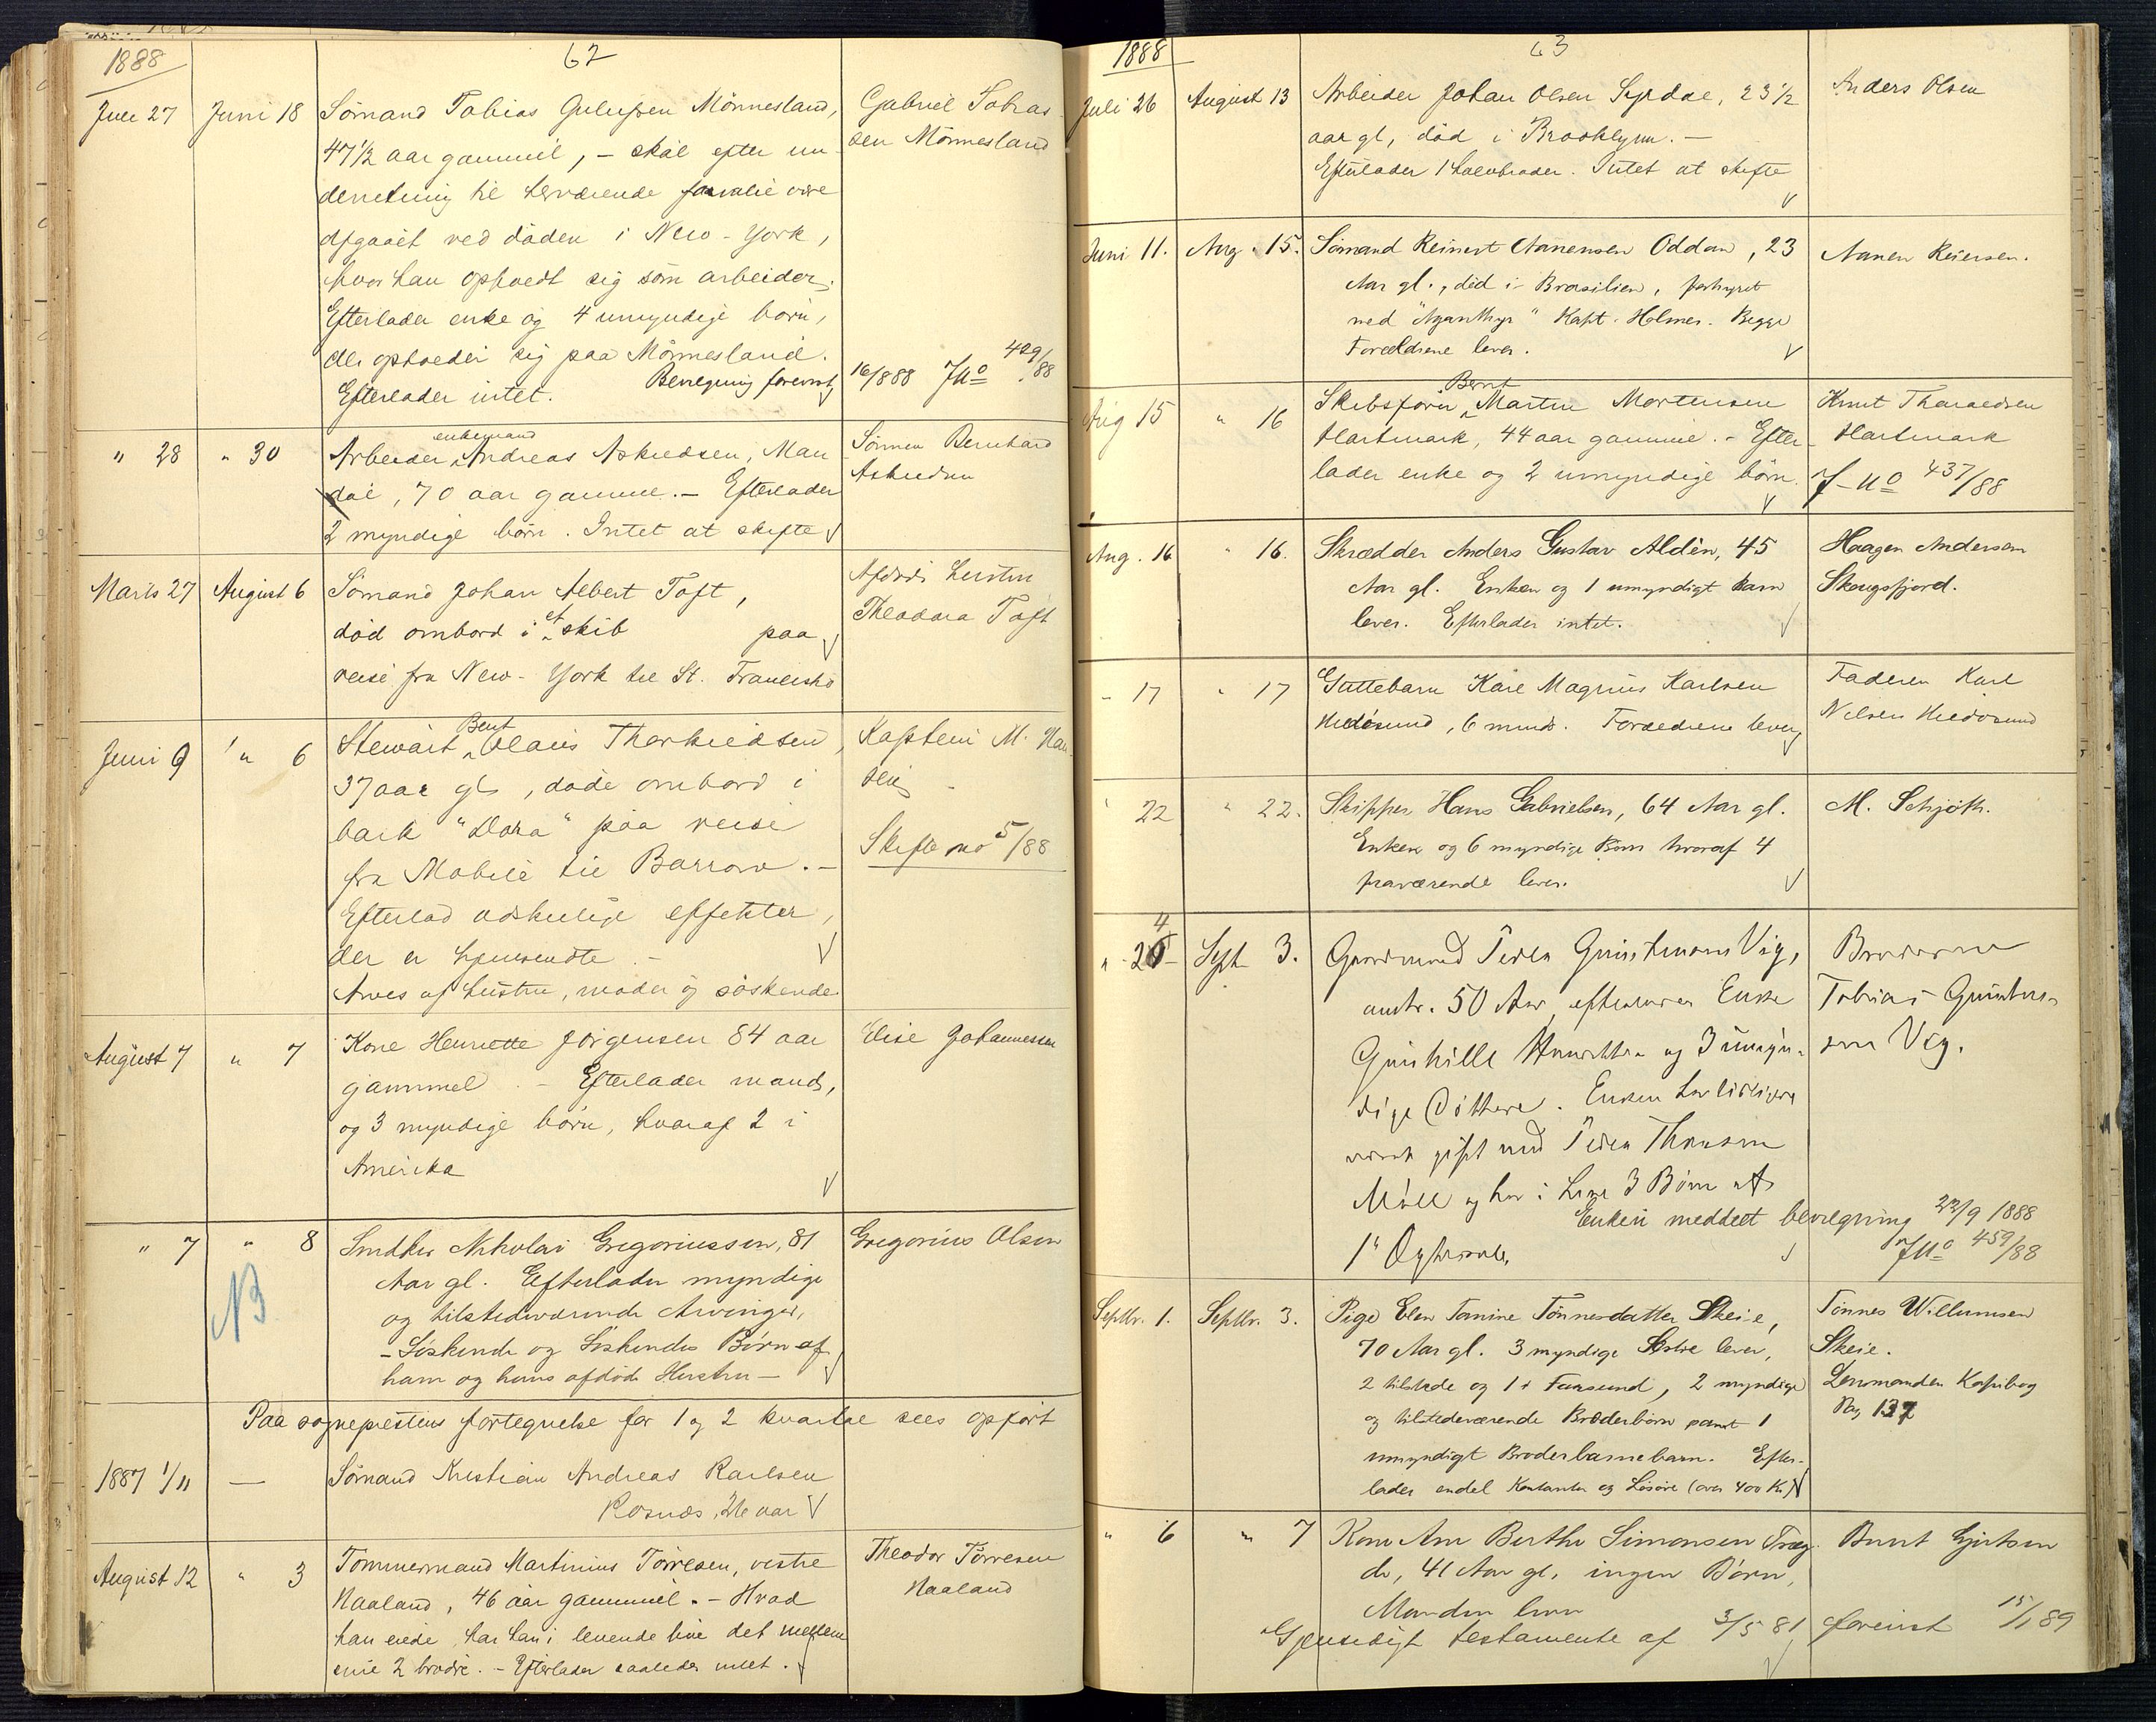 1888
62
Juli 27
Juni 18
Sömand Tobias Gulufsen Mönnesland,
47 1/2 aar gammel, – skal efter un-
derretning til herværende familie være
afgaaet ved döden i New-York,
hvor han opholdt sig som arbeider.
Efterlader enke og 4 umyndige börn,
der opholder sig paa Mönnesland.
Efterlader intet. Bevegning forevist
Gabriel Tobias-
sen Mönnesland
16/8 88 JNo 429/88
" 28
" 30
Arbeider enkemand Andreas Askildsen, Man
dal, 70 aar gammel. – Efterlader
2 myndige börn. Intet at skifte
Sönnen Bernhard
Askildsen
Marts 27
August 6
Sömand Johan Albert Toft,
död ombord i et skib paa
reise fra New-York til St. Francisko
Afdödes hustru
Theodora Toft
Juni 9
" 6
Stewart Bent Olaus Thorkildsen,
37 aar gl, döde ombord i
bark "Dora" paa reise
fra Mobile til Barrow. –
Efterlod adskillige effekter,
der er hjemsendte. –
Arves af hustru, moder og söskende
Kaptein M. Han
sen
Skifte no 5/88
August 7
" 7
Kone Henriette Jörgensen 84 aar
gammel. – Efterlader mand,
og 3 myndige börn, hvoraf 2 i
Amerika
Elise Johannessen
" 7
" 8
NB
Snedker Nikolai Gregoriussen, 81
Aar gl. Efterlader myndige
og tilstedeværende Arvinger,
– Söskende og Söskendes Börn af
ham og hans afdöde Hustru –
Gregorius Olsen
Paa sogneprestens fortegnelse for 1 og 2 kvartal sees opfört
1887 1/11
—
Sömand Kristian Andreas Karlsen
Rosnæs, 26 aar
August 12
" 3
Tömmermand Martinius Törresen, vestre
Naaland, 46 aar gammel. – Hvad
han eiede, har han i levende live delt mellem
sine 2 brödre. – Efterlader saaledes intet.
Theodor Törresen
Naaland
1888
63
Juli 26
August 13
Arbeider Johan Olsen Syrdal, 23 1/2
aar gl, död i Brooklynn. –
Efterlader 1 halvbroder. Intet at skifte
Anders Olsen
Juni 11.
Aug. 15.
Sömand Reinert Aanensen Oddan, 23
Aar gl., död i Brasilien, forhyret
med "Aganthyr" Kapt. Holmer. Begge
Forældrene lever.
Aanen Reiersen.
Aug 15
" 16
Skibsförer Bernt Martin Mortensen
Hartmark, 44 aar gammel. – Efter-
lader enke og 2 umyndige börn.
Knut Tharaldsen
Hartmark
J-No 437/88
Aug. 16
" 16.
Skrædder Anders Gustav Aldén, 45
Aar gl. Enken og 1 umyndigt barn
lever. Efterlader intet.
Haagen Andersen
Skougsfjord.
" 17
" 17
Guttebarn Karl Magnus Karlsen
Hillesund, 6 mnd. Forældrene lever
Faderen Karl
Nilsen Hillesund
" 22
" 22.
Skipper Hans Gabrielsen, 64 Aar gl.
Enken og 6 myndige Börn hvoraf 4
fraværende lever.
M. Schjöth.
" 24
Sept 3.
Gaardmand Peder Guntmann Vig,
omtr. 50 Aar, efterlader Enke
Gunhilde Henriksen og 3 umyn-
dige Döttre. Enken har tidligere
været gift med Peder Thomsen
og har i live 3 Börn
Enken meddelt bevegning 22/9 1888
JNo 459/88
Broderen
Tobias Guntman-
sen Vig.
Septbr. 1.
Septbr. 3.
Pige Elen Tomine Tönnesdatter Skeie,
70 Aar gl. 3 myndige Söstre lever,
2 tilstede og 1 i Farsund, 2 myndige
og tilstedeværende Broderbörn samt 1
umyndigt Broderbarnebarn. Efter-
lader endel Kontanter og Lösöre (over 400 Kr)
Tönnes Willumsen
Skeie.
Lensmanden Kopibog
Pag 137
" 6
" 7
Kone Ane Berthe Simonsen Træg
de, 41 Aar gl, ingen Börn,
Manden lever
Gjensidigt testamente af 3/5 81 forevist 15/1 89
Bernt Gjertsen